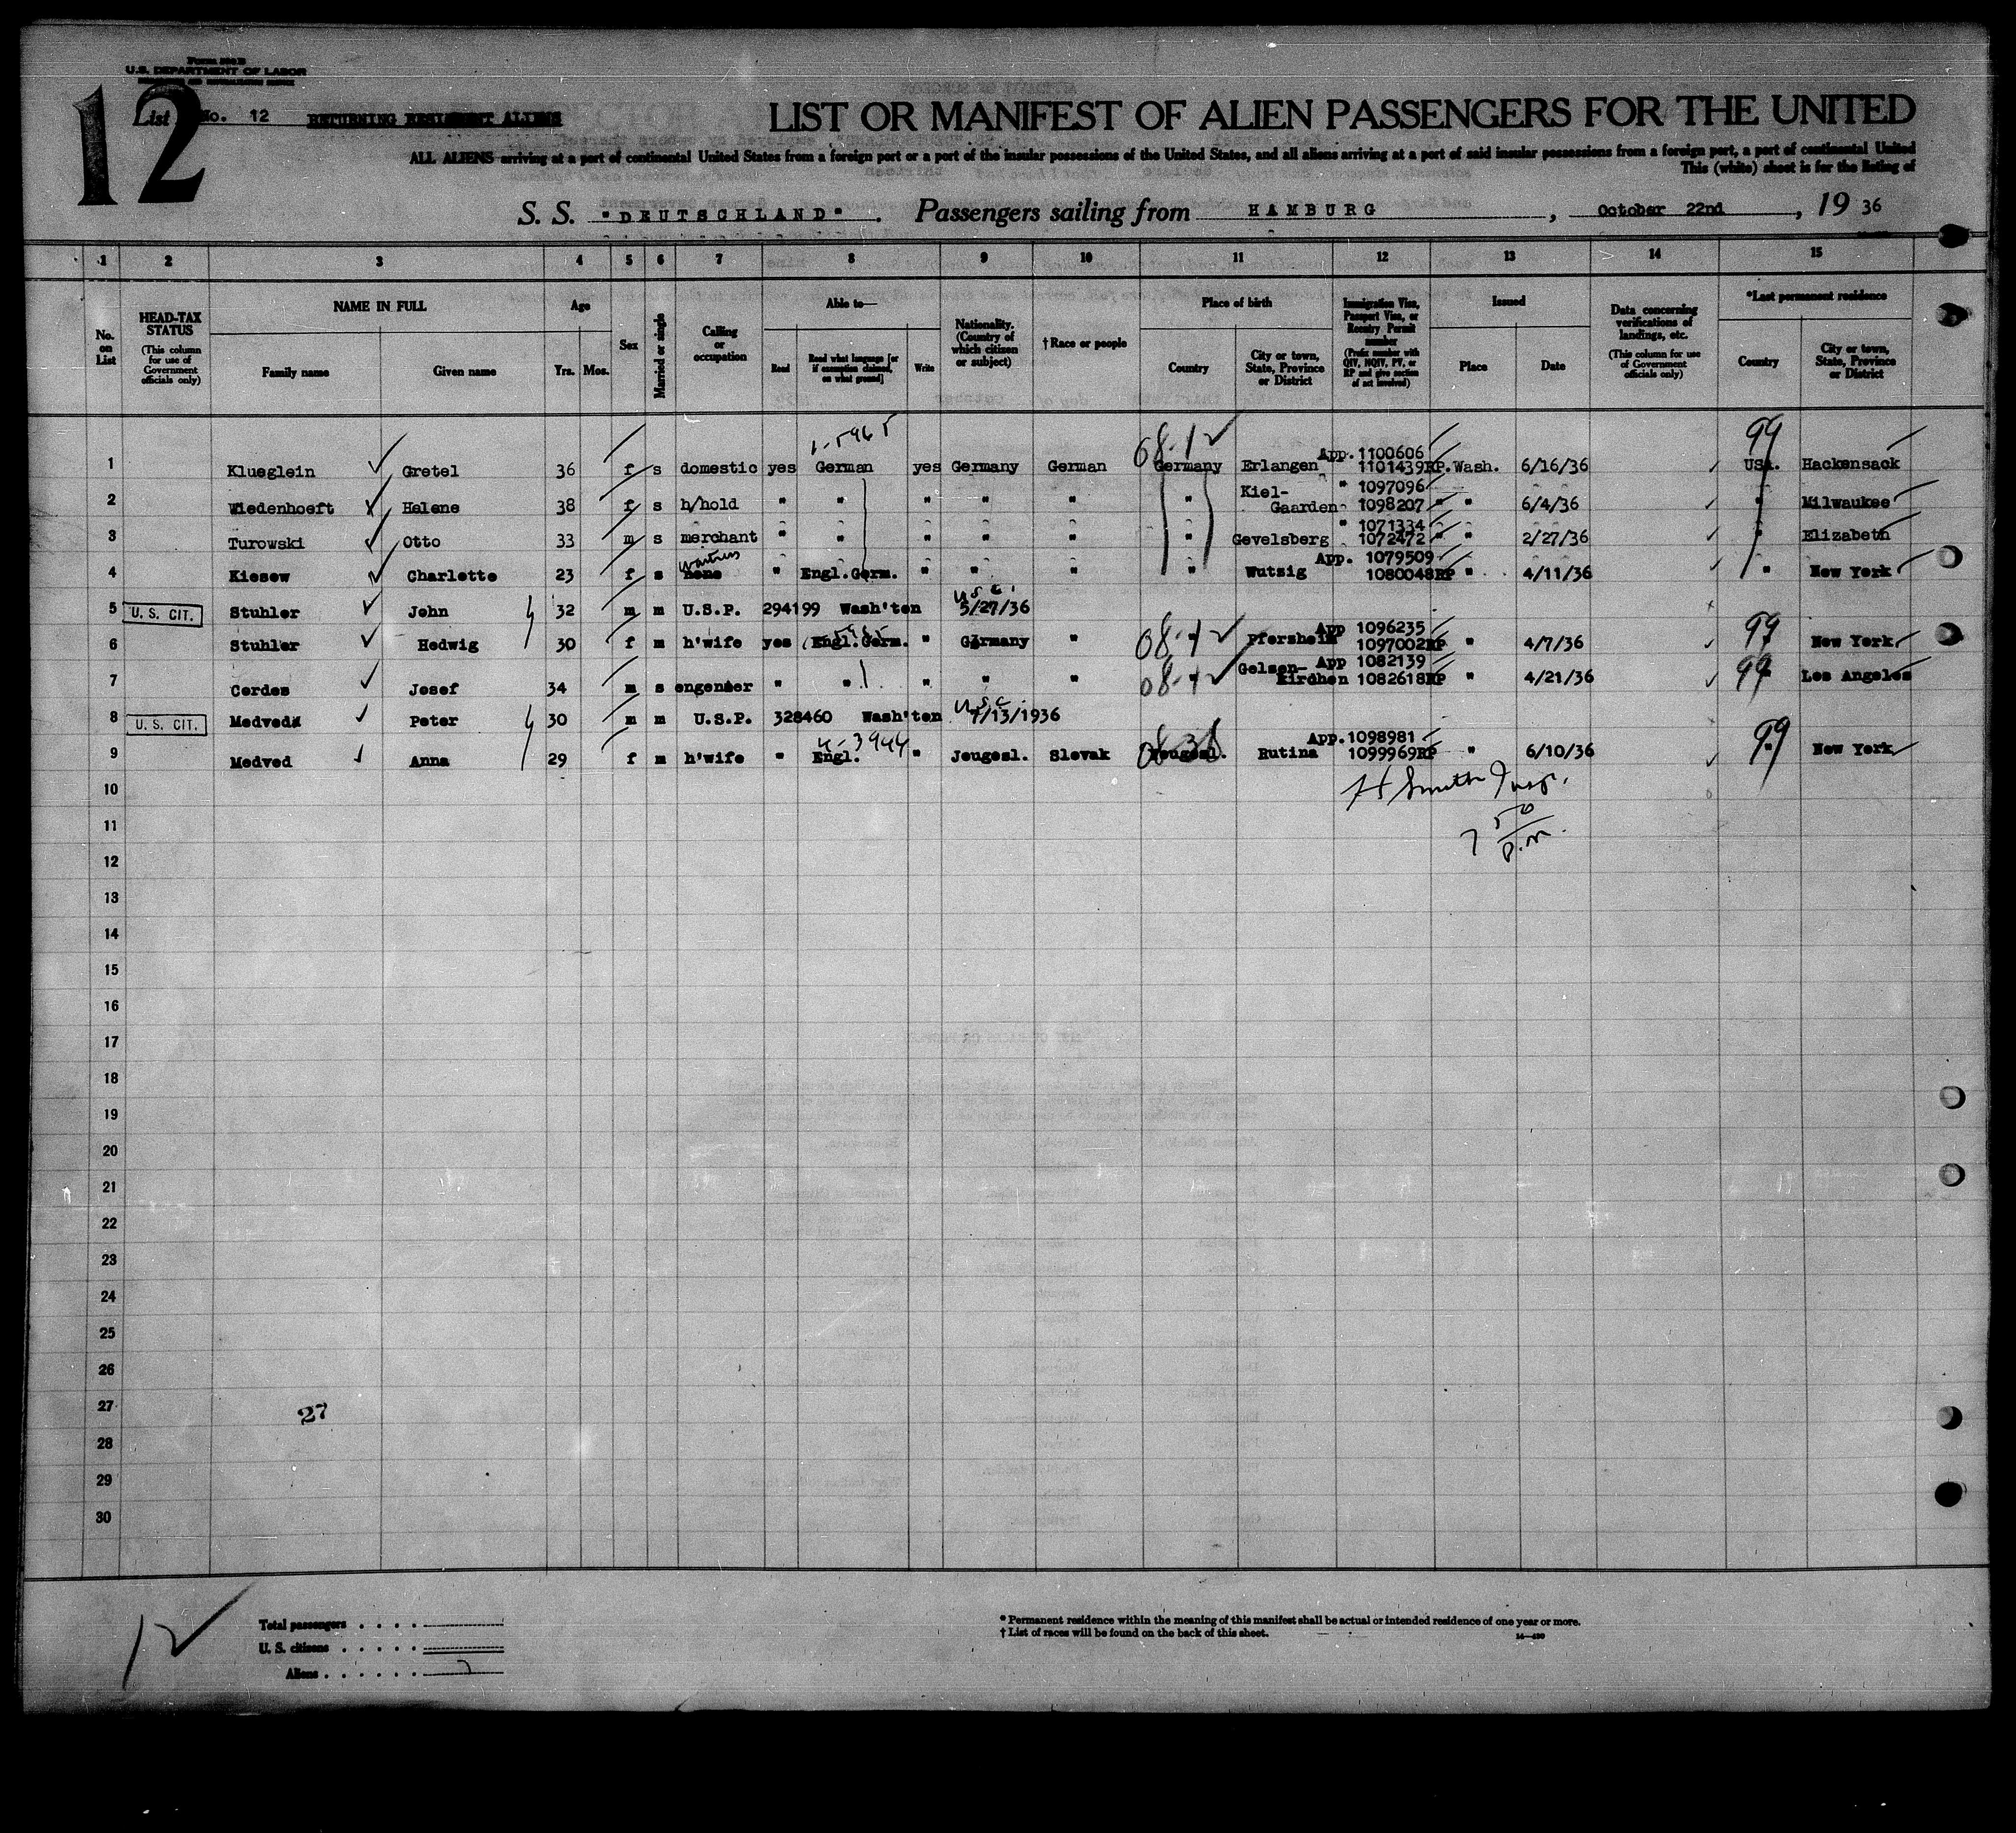 U.S. DEPARTMENT OF LABOR
12
List No. 12 RETURNING RESIDENT ALIENS
LIST OR MANIFEST OF ALIEN PASSENGERS FOR THE UNITED
ALL ALIENS arriving at a port of continental United States from a foreign port or a port of the insular possessions of the United States, and all aliens arriving at a port of said insular possessions from a foreign port, a port of continental United
This (white) sheet is for the listing of
S. S. "DEUTSCHLAND". Passengers sailing from HAMBURG, October 22nd, 19 36
1 2 3 4 5 6 7 8 9 10 11 12 13 14 15
No. on List
HEAD-TAX STATUS (This column for use of Government officials only)
NAME IN FULL
Family name Given name
Age
Yrs. Mos.
Sex
Married or single
Calling or occupation
Able to—
Read Read what language [or if exemption claimed, on what ground] Write
Nationality. (Country of which citizen or subject)
†Race or people
Place of birth
Country City or town, State, Province or District
Immigration Visa, Passport Visa, or Reentry Permit number (Prefix number with QIV, NQIV, PV, or RP and give section of act involved)
Issued
Place Date
Data concerning verifications of landings, etc. (This column for use of Government officials only)
*Last permanent residence
Country City or town, State, Province or District
08-1 99
App. 1100606
1 Klueglein Gretel 36 f s domestic yes German yes Germany German Germany Erlangen 1101439RP. Wash. 6/16/36 USA. Hackensack
Kiel- " 1097096
2 Wiedenhoeft Helene 38 f s h/hold " " " " " " Gaarden 1098207 " " 6/4/36 " Milwaukee
" 1071334
3 Turowski Otto 33 m s merchant " " " " " " Gevelsberg 1072472 " " 2/27/36 " Elizabeth
waitress App. 1079509
4 Kiesow Charlotte 23 f s none " Engl.Germ. " " " " Wutzig 1080048RP " 4/11/36 " New York
U.S.C.
5 U. S. CIT. Stuhler John 32 m m U.S.P. 294199 Wash'ton 5/27/36
App 1096235
6 Stuhler Hedwig 30 f m h'wife yes Engl.Germ. " Germany " 08-1 " Pforzheim 1097002RP " 4/7/36 99 New York
Gelsen- App 1082139
7 Cordes Josef 34 m s " " " " " 08-1 " Kirdhen 1082618RP " 4/21/36 99 Los Angeles
U.S.C.
8 U. S. CIT. Medved Peter 30 m m U.S.P. 328460 Wash'ton 7/13/1936
4-3944 App. 1098981
9 Medved Anna 29 f m h'wife " Engl. " Jougosl. Slovak Jougosl. Rutina 1099969RP " 6/10/36 99 New York
10
H Smith Insp.
11
7 50 p.m.
12
13
14
15
16
17
18
19
20
21
22
23
24
25
26
27
27
28
29
30
12
Total passengers
U. S. citizens
Aliens
* Permanent residence within the meaning of this manifest shall be actual or intended residence of one year or more.
† List of races will be found on the back of this sheet.